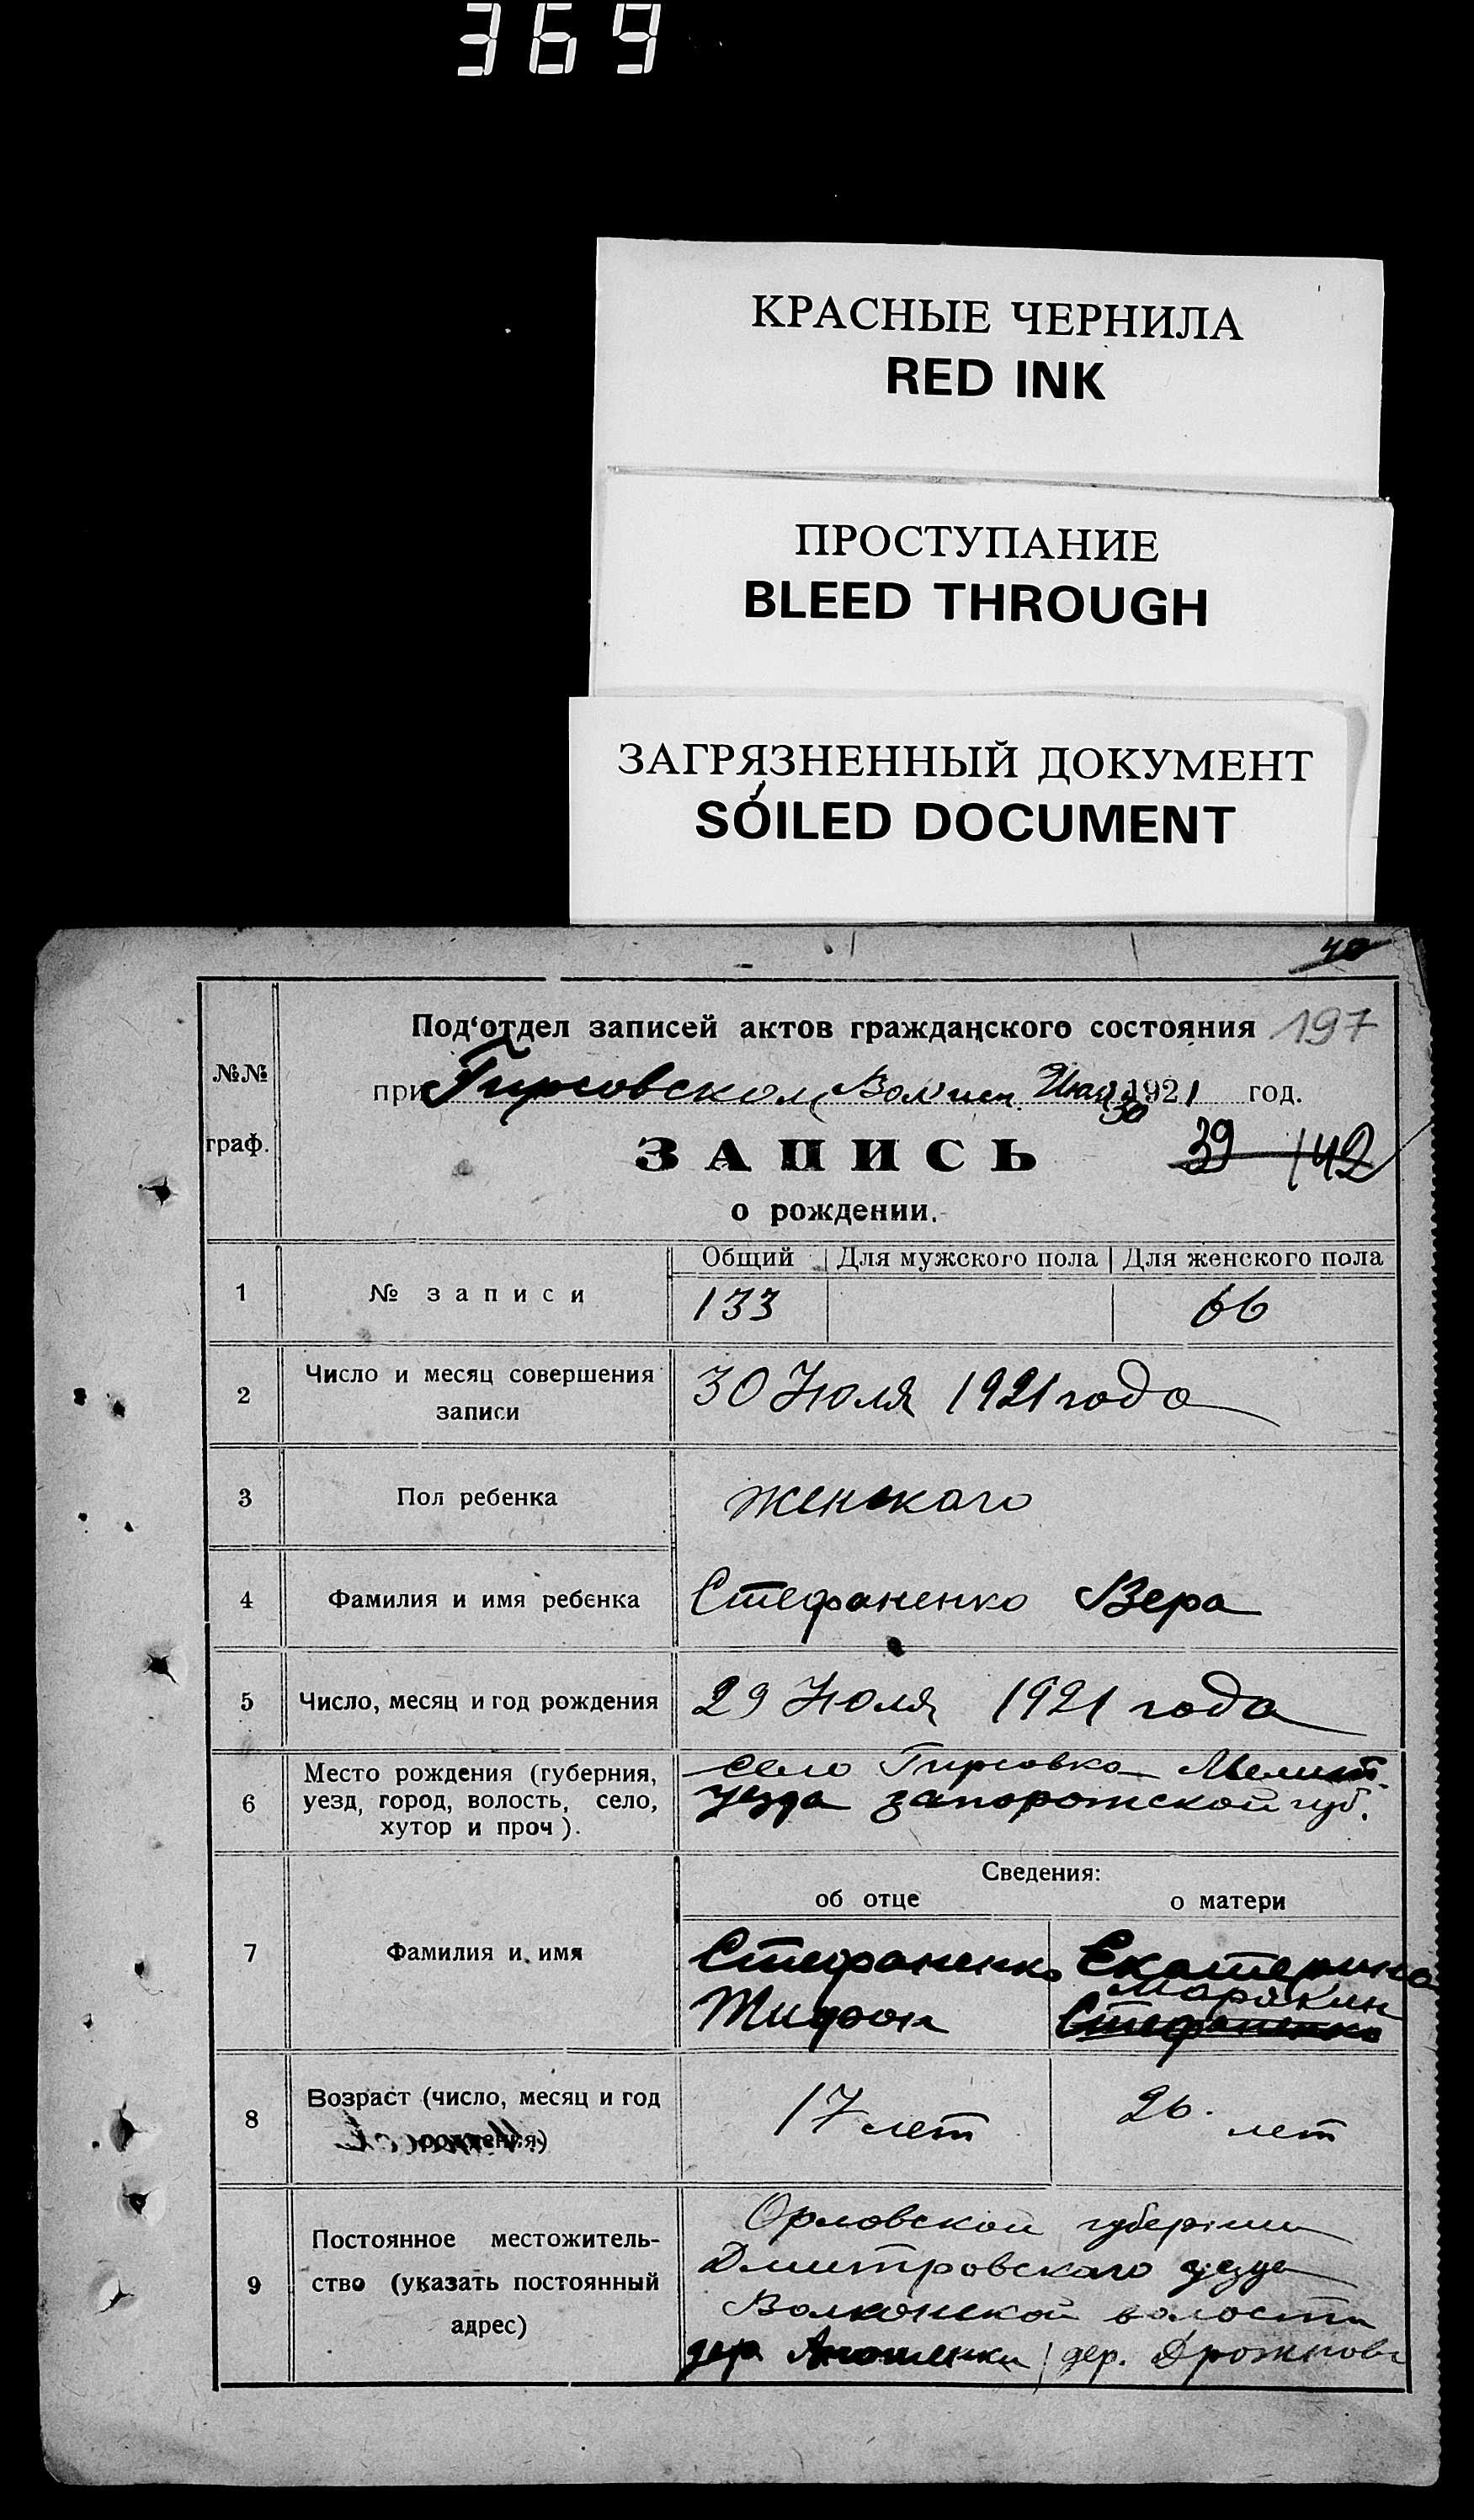 369
КРАСНЫЕ ЧЕРНИЛА
RED INK
ПРОСТУПАНИЕ
BLEED THROUGH
ЗАГРЯЗНЕННЫЙ ДОКУМЕНТ
SOILED DOCUMENT
40
Под‘отдел записей актов гражданского состояния 197
№№
при Гирсовском Вол 30 1921 год.
граф.
ЗАПИСЬ 39 142
о рождении.
Общий Для мужского пола Для женского пола
1 № записи 133 66
2 Число и месяц совершения
записи
30 Июля 1921 года
3 Пол ребенка женскаго
4 Фамилия и имя ребенка Стефаненко Вера
5 Число, месяц и год рождения 29 Июля 1921 года
6 Место рождения (губерния,
уезд, город, волость, село,
хутор и проч).
село Гирсовка Мелит.
уезда запорожской губ.
Сведения:
об отце о матери
7 Фамилия и имя
Стефаненко Екатерина
Тифон Марякин
Стефаненко
8 Возраст (число, месяц и год
рождения)
17 лет 26. лет
9 Постоянное местожитель-
ство (указать постоянный
адрес)
Орловской губернии
Дмитровскаго уезда
Волконской волости
дер. дер.